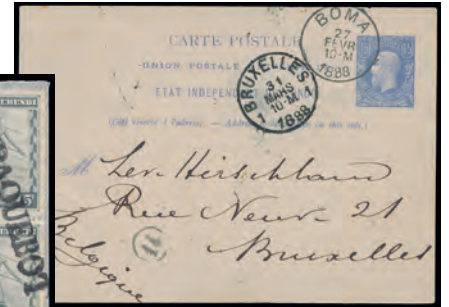 CARTE POSTALE
UNION POSTALE
ETAT INDEPENDANT
(Côté réservé à l'adresse. — on this side.)
BOMA
27
FEVR
10-M
1888
BRUXELLES
31
MARS
10-M
1 1888 1
M Lev. Hirsch
Rue Neuve 21
Bruxelles
Belgique
11